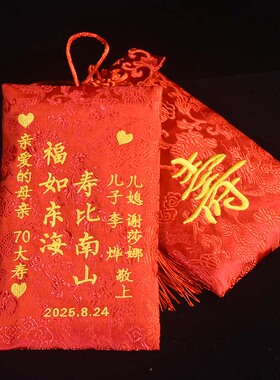 亲爱的母亲 70大寿
福如东海
寿比南山
儿媳 谢莎娜
儿子 李 烨 敬上
2025.8.24
寿